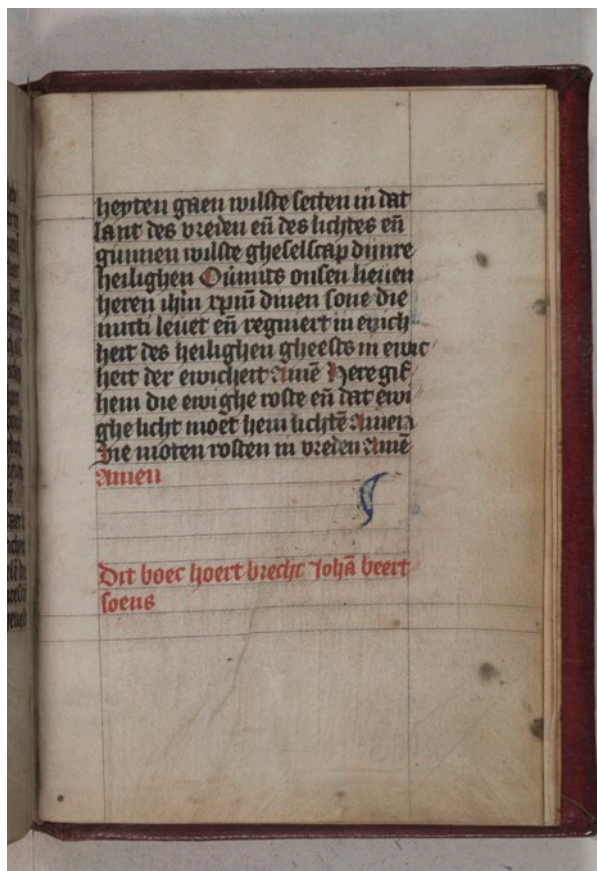 heyten gaen wilste setten in dat
lant des vreden eñ des lichtes eñ
gunnen wilste gheselscap dijnre
heilighen Ouermits onsen lieuen
heren ihm xpm dinen sone die
mitti leuet eñ regniert in ewich
heit des heilighen gheests in ewic
heit der ewicheit Amē Here gif
hem die ewighe roste eñ dat ewi
ghe licht moet hem lichtē Amen
Sie moten rosten in vreden Amē
Amen
Dit boec hoert brecht Johā beert
soens